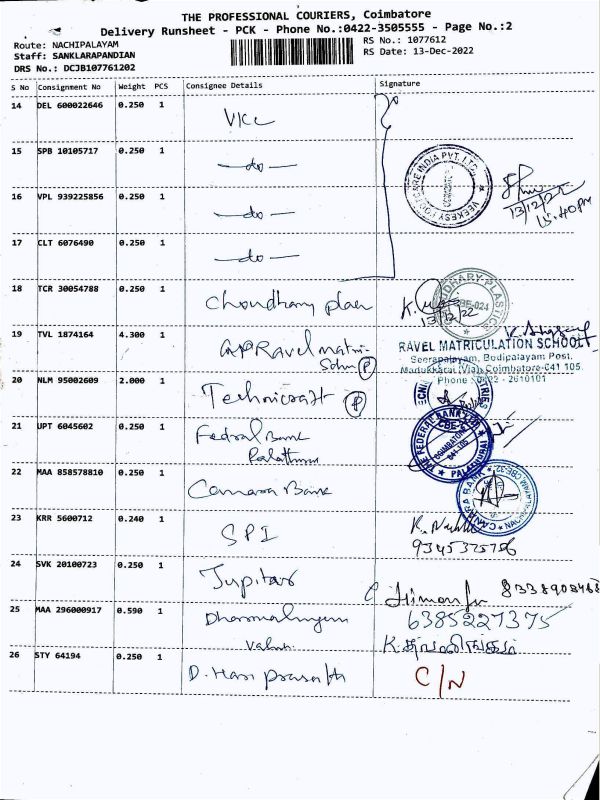 THE PROFESSIONAL COURIERS, Coimbatore
Delivery Runsheet - PCK - Phone No.:0422-3505555 - Page No.:2
Route: NACHIPALAYAM
Staff: SANKLARAPANDIAN
DRS No.: DCJB107761202
RS No.: 1077612
RS Date: 13-Dec-2022
S No Consignment No Weight PCS Consignee Details Signature
14 DEL 600022646 0.250 1
15 SPB 10105717 0.250 1 -do-
16 VPL 939225856 0.250 1 -do-
VEEKESY FOOTCARE INDIA PVT. LTD.
13/12/22
15.40pm
17 CLT 6076490 0.250 1 -do-
18 TCR 30054788 0.250 1 Choudhary
CBE-024
13/12/22
19 TVL 1874164 4.300 1 P
RAVEL MATRICULATION SCHOOL
Seerapalayam, Bodipalayam Post,
Madukkarai (Via) Coimbatore-641 105.
Phone : 0422 - 2610101
20 NLM 95002609 2.000 1 Technicraft P
21 UPT 6045602 0.250 1 Fedral Bank
THE FEDERAL BANK LTD
COIMBATORE
641 105
22 MAA 858578810 0.250 1 Canara Bank
CANARA BANK
23 KRR 5600712 0.240 1 SPI
9345375756
24 SVK 20100723 0.250 1 Jupitar
25 MAA 296000917 0.590 1
6385227375
26 STY 64194 0.250 1 D. Hari prasath C/N